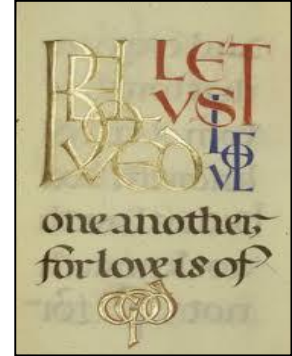 BELOVED
LET
VS
LOVE
one another,
for love is of
GOD